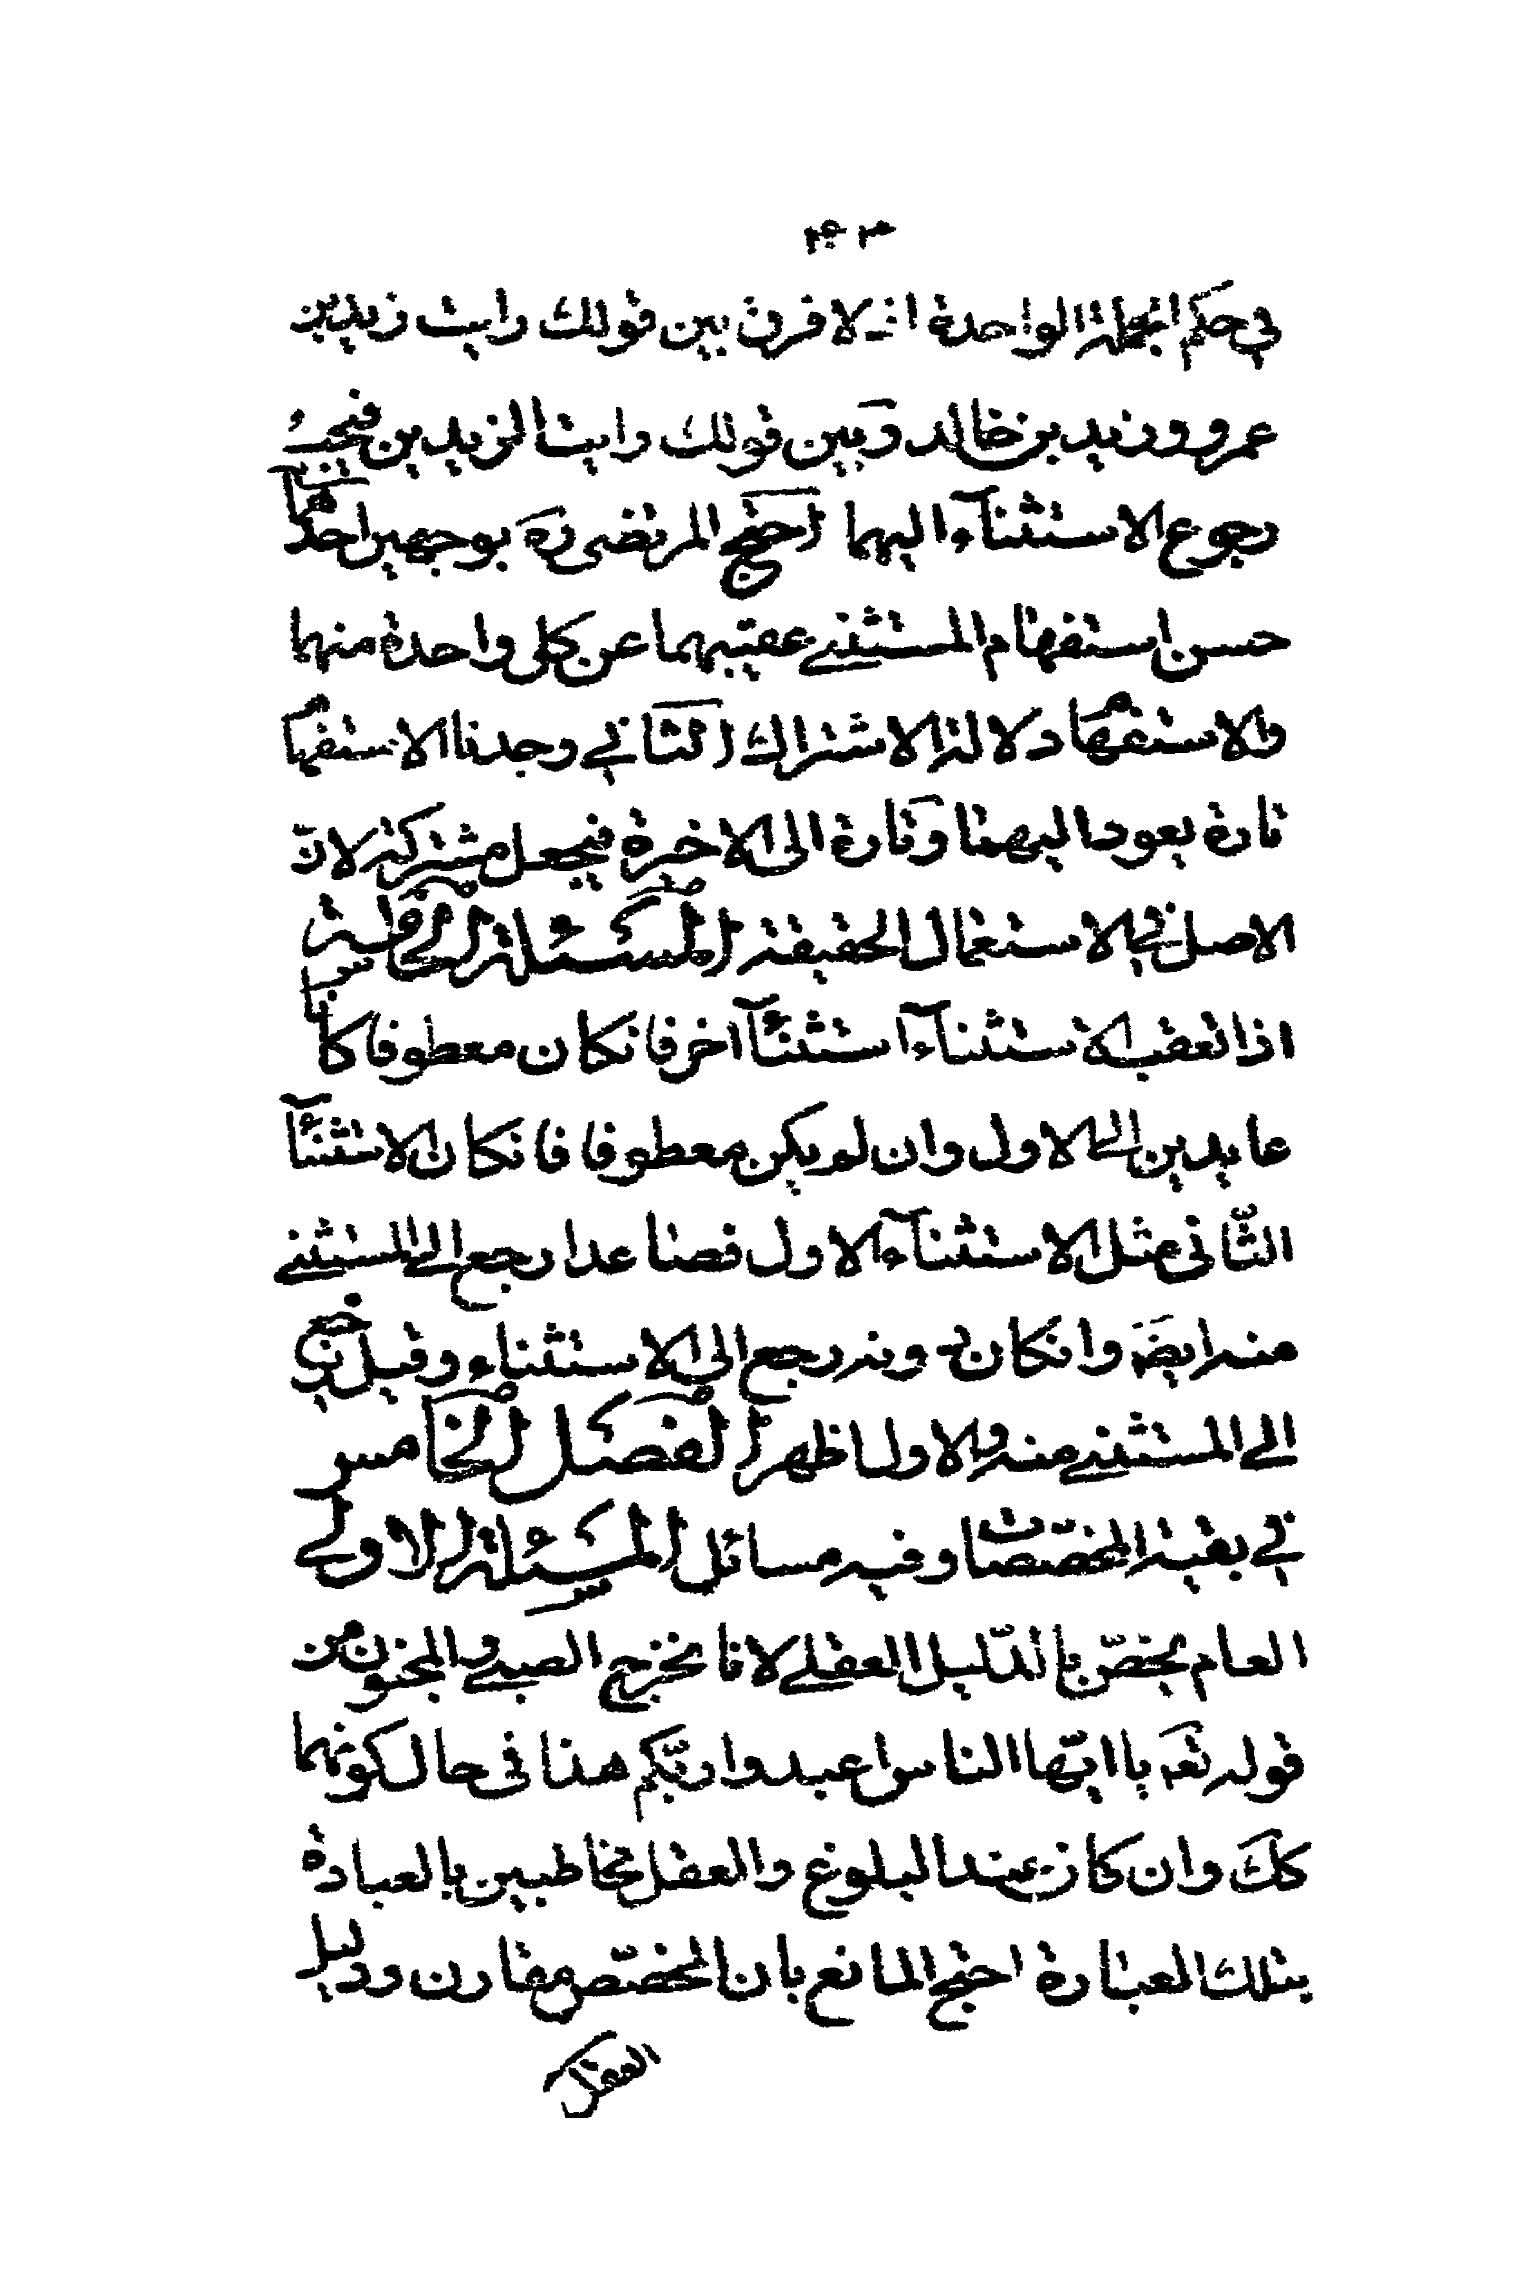 في حكم الجملة الواحدة اذ لا فرق بين قولك رايت زيد بن
عمرو وزيد بن خالد وبين قولك رايت الزيدين فيجب
رجوع الاستثناء اليهما احتج المرتضى ره بوجهين احدها
حسن استفهام المستثنى عقيبهما عن كل واحدة منهما
والاستفهام دلالة الاشتراك الثاني وجدنا الاستفهام
تارة يعود اليهما وتارة الى الاخرة فيجعل مشتركة لان
الاصل في الاستعمال الحقيقة المسئلة الخامسة
اذا تعقب الاستثناء استثناء اخر فان كان معطوفا كانا
عايدين الى الاول وان لم يكن معطوفا فان كان الاستثناء
الثاني مثل الاستثناء الاول فصاعدا رجع الى المستثنى
منه ايضا وان كان دونه رجع الى الاستثناء وقيل يرجع
الى المستثنى منه والاول اظهر الفصل الخامس
في بقية المخصصات وفيه مسائل المسئلة الاولى
العام يخص بالدليل العقلي لانا نخرج الصبي والمجنون من
قوله تعه يا ايها الناس اعبدوا ربكم هذا في حال كونهما
كك وان كانا عند البلوغ والعقل مخاطبين بالعبادة
بتلك العبارة احتج المانع بان المخصص مقارن ودليل
العقل